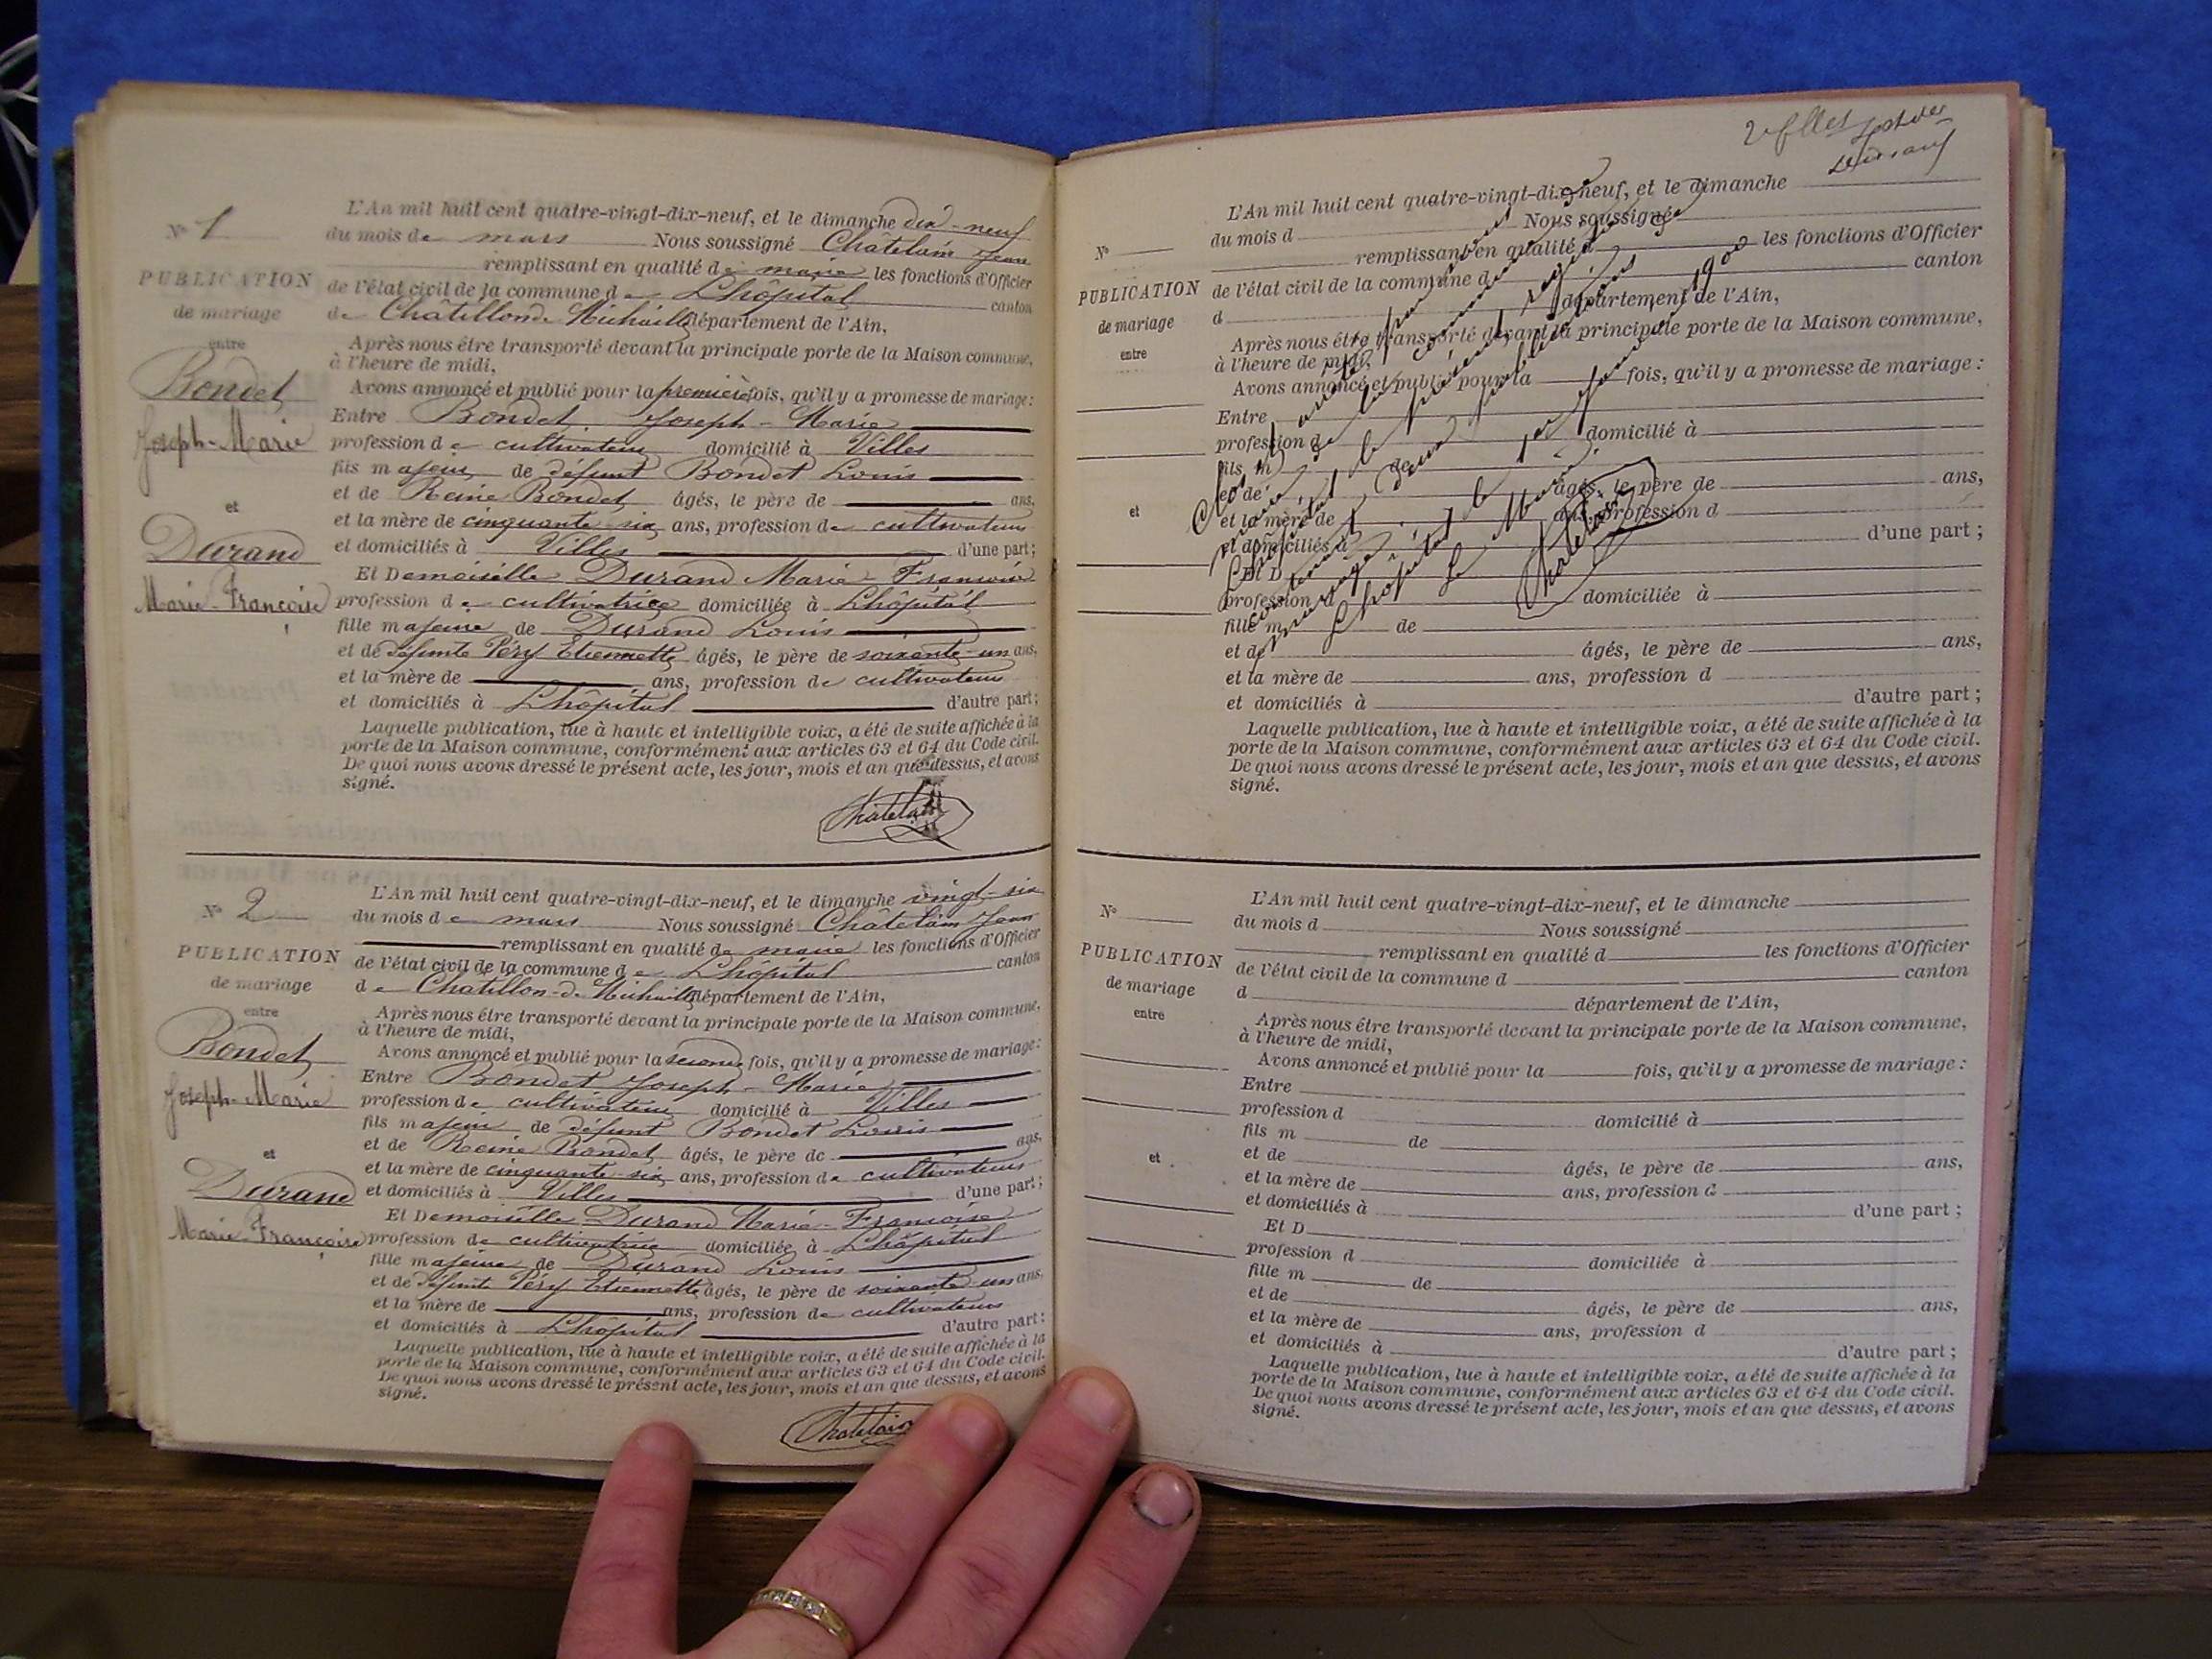 N° 1
PUBLICATION
de mariage
entre
Bondet
Joseph-Marie
et
Durand
Marie-Françoise
L'An mil huit cent quatre-vingt-dix-neuf, et le dimanche dix-neuf
du mois de mars Nous soussigné Châtelain Jean
remplissant en qualité de maire les fonctions d'Officier
de l'état civil de la commune de Lhôpital canton
de Châtillon de Michaille département de l'Ain,
Après nous être transporté devant la principale porte de la Maison commune,
à l'heure de midi,
Avons annoncé et publié pour la première fois, qu'il y a promesse de mariage:
Entre Bondet Joseph-Marie
profession de cultivateur domicilié à Villes
fils majeur de défunt Bondet Louis
et de Reine Bondet âgés, le père de ans,
et la mère de cinquante-six ans, profession de cultivateurs
et domiciliés à Villes d'une part;
Et Demoiselle Durand Marie-Françoise
profession de cultivatrice domiciliée à Lhôpital
fille majeure de Durand Louis
et de défunte Péry Etiennette âgés, le père de soixante-un ans,
et la mère de ans, profession de cultivateurs
et domiciliés à Lhôpital d'autre part;
Laquelle publication, lue à haute et intelligible voix, a été de suite affichée à la
porte de la Maison commune, conformément aux articles 63 et 64 du Code civil.
De quoi nous avons dressé le présent acte, les jour, mois et an que dessus, et avons
signé.
Chatelain
N° 2
PUBLICATION
de mariage
entre
Bondet
Joseph-Marie
et
Durand
Marie-Françoise
L'An mil huit cent quatre-vingt-dix-neuf, et le dimanche vingt-six
du mois de mars Nous soussigné Châtelain Jean
remplissant en qualité de maire les fonctions d'Officier
de l'état civil de la commune de Lhôpital canton
de Chatillon-de-Michaille département de l'Ain,
Après nous être transporté devant la principale porte de la Maison commune,
à l'heure de midi,
Avons annoncé et publié pour la seconde fois, qu'il y a promesse de mariage:
Entre Bondet Joseph-Marie
profession de cultivateur domicilié à Villes
fils majeur de défunt Bondet Louis
et de Reine Bondet âgés, le père de ans,
et la mère de cinquante-six ans, profession de cultivateurs
et domiciliés à Villes d'une part;
Et Demoiselle Durand Marie-Françoise
profession de cultivatrice domiciliée à Lhôpital
fille majeure de Durand Louis
et de défunte Péry Etiennette âgés, le père de soixante-un ans,
et la mère de ans, profession de cultivateurs
et domiciliés à Lhôpital d'autre part;
Laquelle publication, lue à haute et intelligible voix, a été de suite affichée à la
porte de la Maison commune, conformément aux articles 63 et 64 du Code civil.
De quoi nous avons dressé le présent acte, les jour, mois et an que dessus, et avons
signé.
Chatelain
N°
PUBLICATION
de mariage
entre
et
L'An mil huit cent quatre-vingt-dix-neuf, et le dimanche
du mois d Nous soussigné
remplissant en qualité d les fonctions d'Officier
de l'état civil de la commune d canton
d département de l'Ain,
Après nous être transporté devant la principale porte de la Maison commune,
à l'heure de midi,
Avons annoncé et publié pour la fois, qu'il y a promesse de mariage:
Entre
profession d domicilié à
fils m de
et de âgés, le père de ans,
et la mère de ans, profession d
et domiciliés à d'une part;
Et D
profession d domiciliée à
fille m de
et de âgés, le père de ans,
et la mère de ans, profession d
et domiciliés à d'autre part;
Laquelle publication, lue à haute et intelligible voix, a été de suite affichée à la
porte de la Maison commune, conformément aux articles 63 et 64 du Code civil.
De quoi nous avons dressé le présent acte, les jour, mois et an que dessus, et avons
signé.
Clos et arrêté par nous
maire de la commune de
Lhôpital le présent registre
contenant deux publications
mariage.
Lhôpital le 1er janvier 1900
Le Maire
Chatelain
N°
PUBLICATION
de mariage
entre
et
L'An mil huit cent quatre-vingt-dix-neuf, et le dimanche
du mois d Nous soussigné
remplissant en qualité d les fonctions d'Officier
de l'état civil de la commune d canton
d département de l'Ain,
Après nous être transporté devant la principale porte de la Maison commune,
à l'heure de midi,
Avons annoncé et publié pour la fois, qu'il y a promesse de mariage:
Entre
profession d domicilié à
fils m de
et de âgés, le père de ans,
et la mère de ans, profession d
et domiciliés à d'une part;
Et D
profession d domiciliée à
fille m de
et de âgés, le père de ans,
et la mère de ans, profession d
et domiciliés à d'autre part;
Laquelle publication, lue à haute et intelligible voix, a été de suite affichée à la
porte de la Maison commune, conformément aux articles 63 et 64 du Code civil.
De quoi nous avons dressé le présent acte, les jour, mois et an que dessus, et avons
signé.